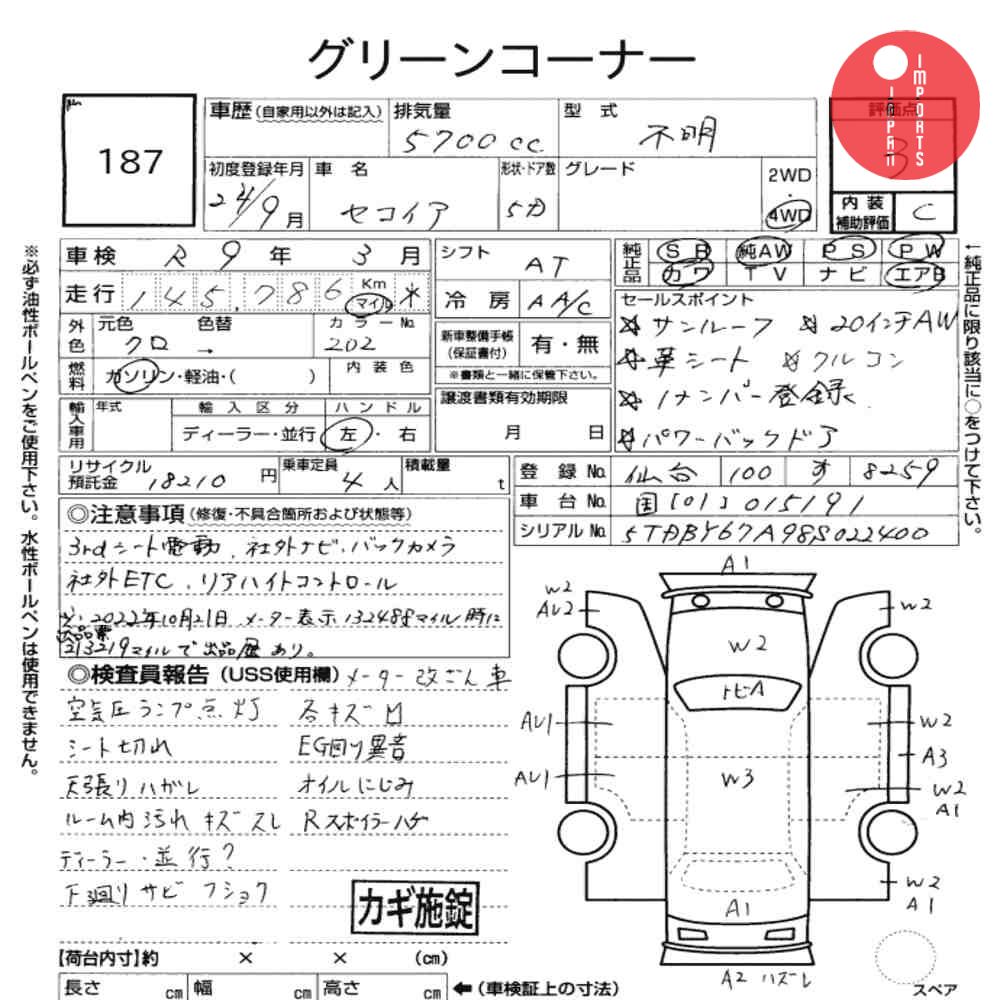 グリーンコーナー
187
車歴(自家用以外は記入)
排気量
5700cc
型式
不明
評価点
3
IMPORTS
初度登録年月
24/9月
車名
セコイア
形状・ドア数
5D
グレード
2WD
・
4WD
内装
補助評価
C
※必ず油性ボールペンをご使用下さい。水性ボールペンは使用できません。
↑純正品に限り該当に○をつけて下さい。
車検 R 9年 3月
走行 145,786 Km マイル *
外色
元色 クロ →
色替
カラーNo. 202
燃料
ガソリン・軽油・( )
内装色
輸入車用
年式
輸入区分
ディーラー・並行
ハンドル
左・右
シフト AT
冷房 AA/C
新車整備手帳
(保証書付)
有・無
※書類と一緒に保管下さい。
譲渡書類有効期限
月 日
純正品
SR 純AW PS PW
カワ TV ナビ エアB
セールスポイント
☆サンルーフ ☆20インチAW
☆革シート ☆クルコン
☆1ナンバー登録
☆パワーバックドア
リサイクル預託金 18210円
乗車定員 4人
積載量 t
登録No. 仙台 100 す 8259
車台No. 国[01]015191
シリアルNo. 5TDBY67A98S022400
◎注意事項(修復・不具合箇所および状態等)
3rdシート電動、社外ナビ・バックカメラ
社外ETC、リアハイトコントロール
注:2022年10月21日 メーター表示132488マイル時に
出品票
213219マイルで出品歴あり。
◎検査員報告(USS使用欄)メーター改ざん車
空気圧ランプ点灯 各キズ凹
シート切れ EG回り異音
天張りハガレ オイルにじみ
ルーム内汚れ キズスレ Rスポイラーハゲ
ディーラー・並行?
下廻りサビフショク
カギ施錠
A1
W2
AU2
W2
W2
トビA
AU1
W2
A3
AU1
W3
W2
A1
W2
A1
A1
A2 ハズレ
スペア
【荷台内寸】約 × × (cm)
長さ cm 幅 cm 高さ cm ←(車検証上の寸法)